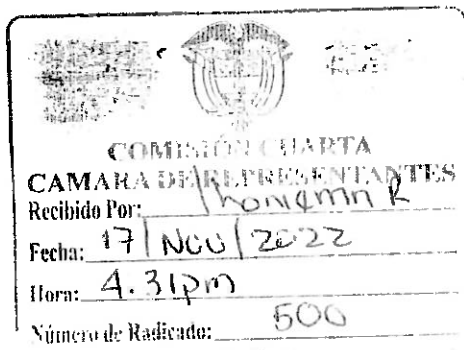 COMISIÓN CUARTA
CAMARA DE REPRESENTANTES
Recibido Por: R
Fecha: 17 / Nov / 2022
Hora: 4.31pm
Número de Radicado: 500